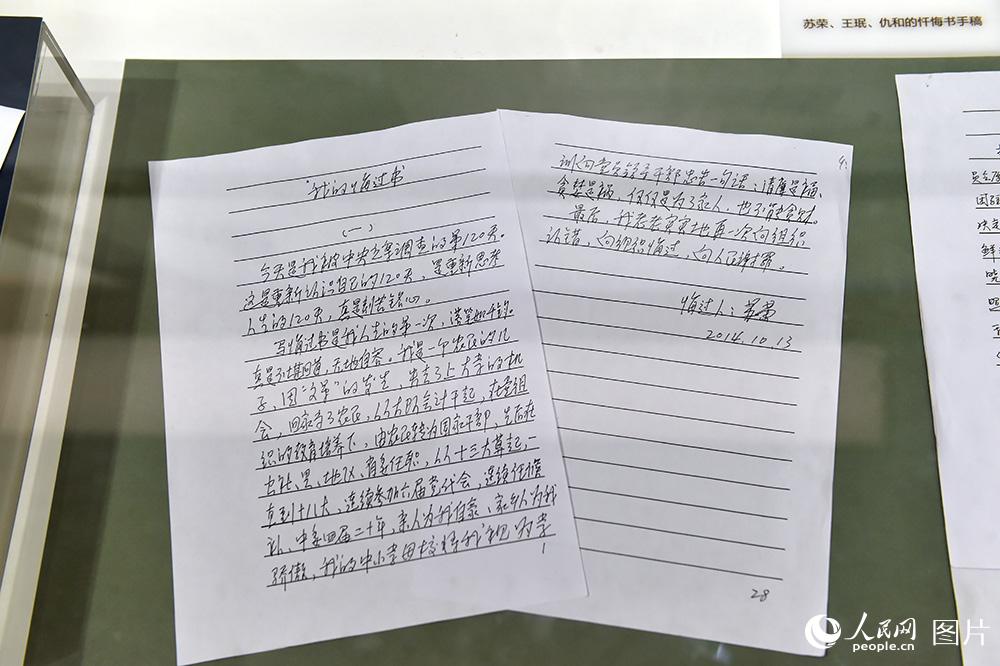 苏荣、王珉、仇和的忏悔书手稿
我的悔过书
(一)
今天是我接受中央立案调查的第120天。
这是重新认识自己的120天，是重新思考
人生的120天，真是刻苦铭心。
写悔过书是我人生的第一次，落笔如千钧。
真是不堪回首，无地自容。我是一个农民的儿
子，因"文革"的发生，失去了上大学的机
会，回家当了农民，从大队会计干起，在党组
织的教育培养下，由农民转为国家干部，先后在
公社、县、地区、省委任职，从十三大算起，一
直到十八大，连续参加六届党代会，连续任候
补、中委四届二十年，亲人为我自豪、家乡人为我
骄傲，我的中小学母校将我视为学
1
训向党员领导干部忠告一句话：清廉是福、
贪婪是祸，仅仅是为了家人，也不能贪财。
最后，我老老实实地再一次向组织
认错，向组织悔过，向人民谢罪。
悔过人：苏荣
2014.10.13
28
人民网 图片
people.cn